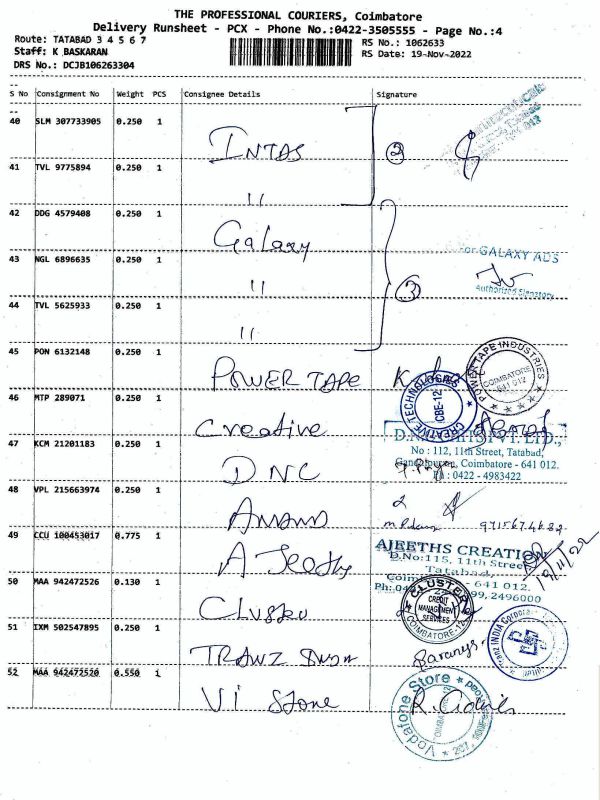 THE PROFESSIONAL COURIERS, Coimbatore
Delivery Runsheet - PCX - Phone No.:0422-3505555 - Page No.:4
Route: TATABAD 3 4 5 6 7
RS No.: 1062633
Staff: K BASKARAN
RS Date: 19-Nov-2022
DRS No.: DCJB106263304
S No Consignment No Weight PCS Consignee Details Signature
40 SLM 307733905 0.250 1 INTAS
2
41 TVL 9775894 0.250 1 "
42 DDG 4579408 0.250 1 Galaxy
43 NGL 6896635 0.250 1 "
For GALAXY ADS
Authorised Signatory
3
44 TVL 5625933 0.250 1 "
45 PON 6132148 0.250 1 POWER TAPE
POWER TAPE INDUSTRIES
COIMBATORE
641 012
46 MTP 289071 0.250 1 Creative
CREATIVE TECHNOLOGIES
CBE-12
47 KCM 21201183 0.250 1 DNC
PVT. LTD.,
No : 112, 11th Street, Tatabad,
Coimbatore - 641 012.
Ph : 0422 - 4983422
48 VPL 215663974 0.250 1
49 CCU 100453017 0.775 1 A Jeeths
AJEETHS CREATION
D.No:115, 11th Street
Tatabad,
641 012.
2496000
19/11/22
50 MAA 942472526 0.130 1 Cluster
CLUSTER
CREDIT
MANAGEMENT
SERVICES
COIMBATORE-12
51 IXM 502547895 0.250 1 TRANZ
INDIA
52 MAA 942472520 0.550 1 VI Store
Vodafone Store